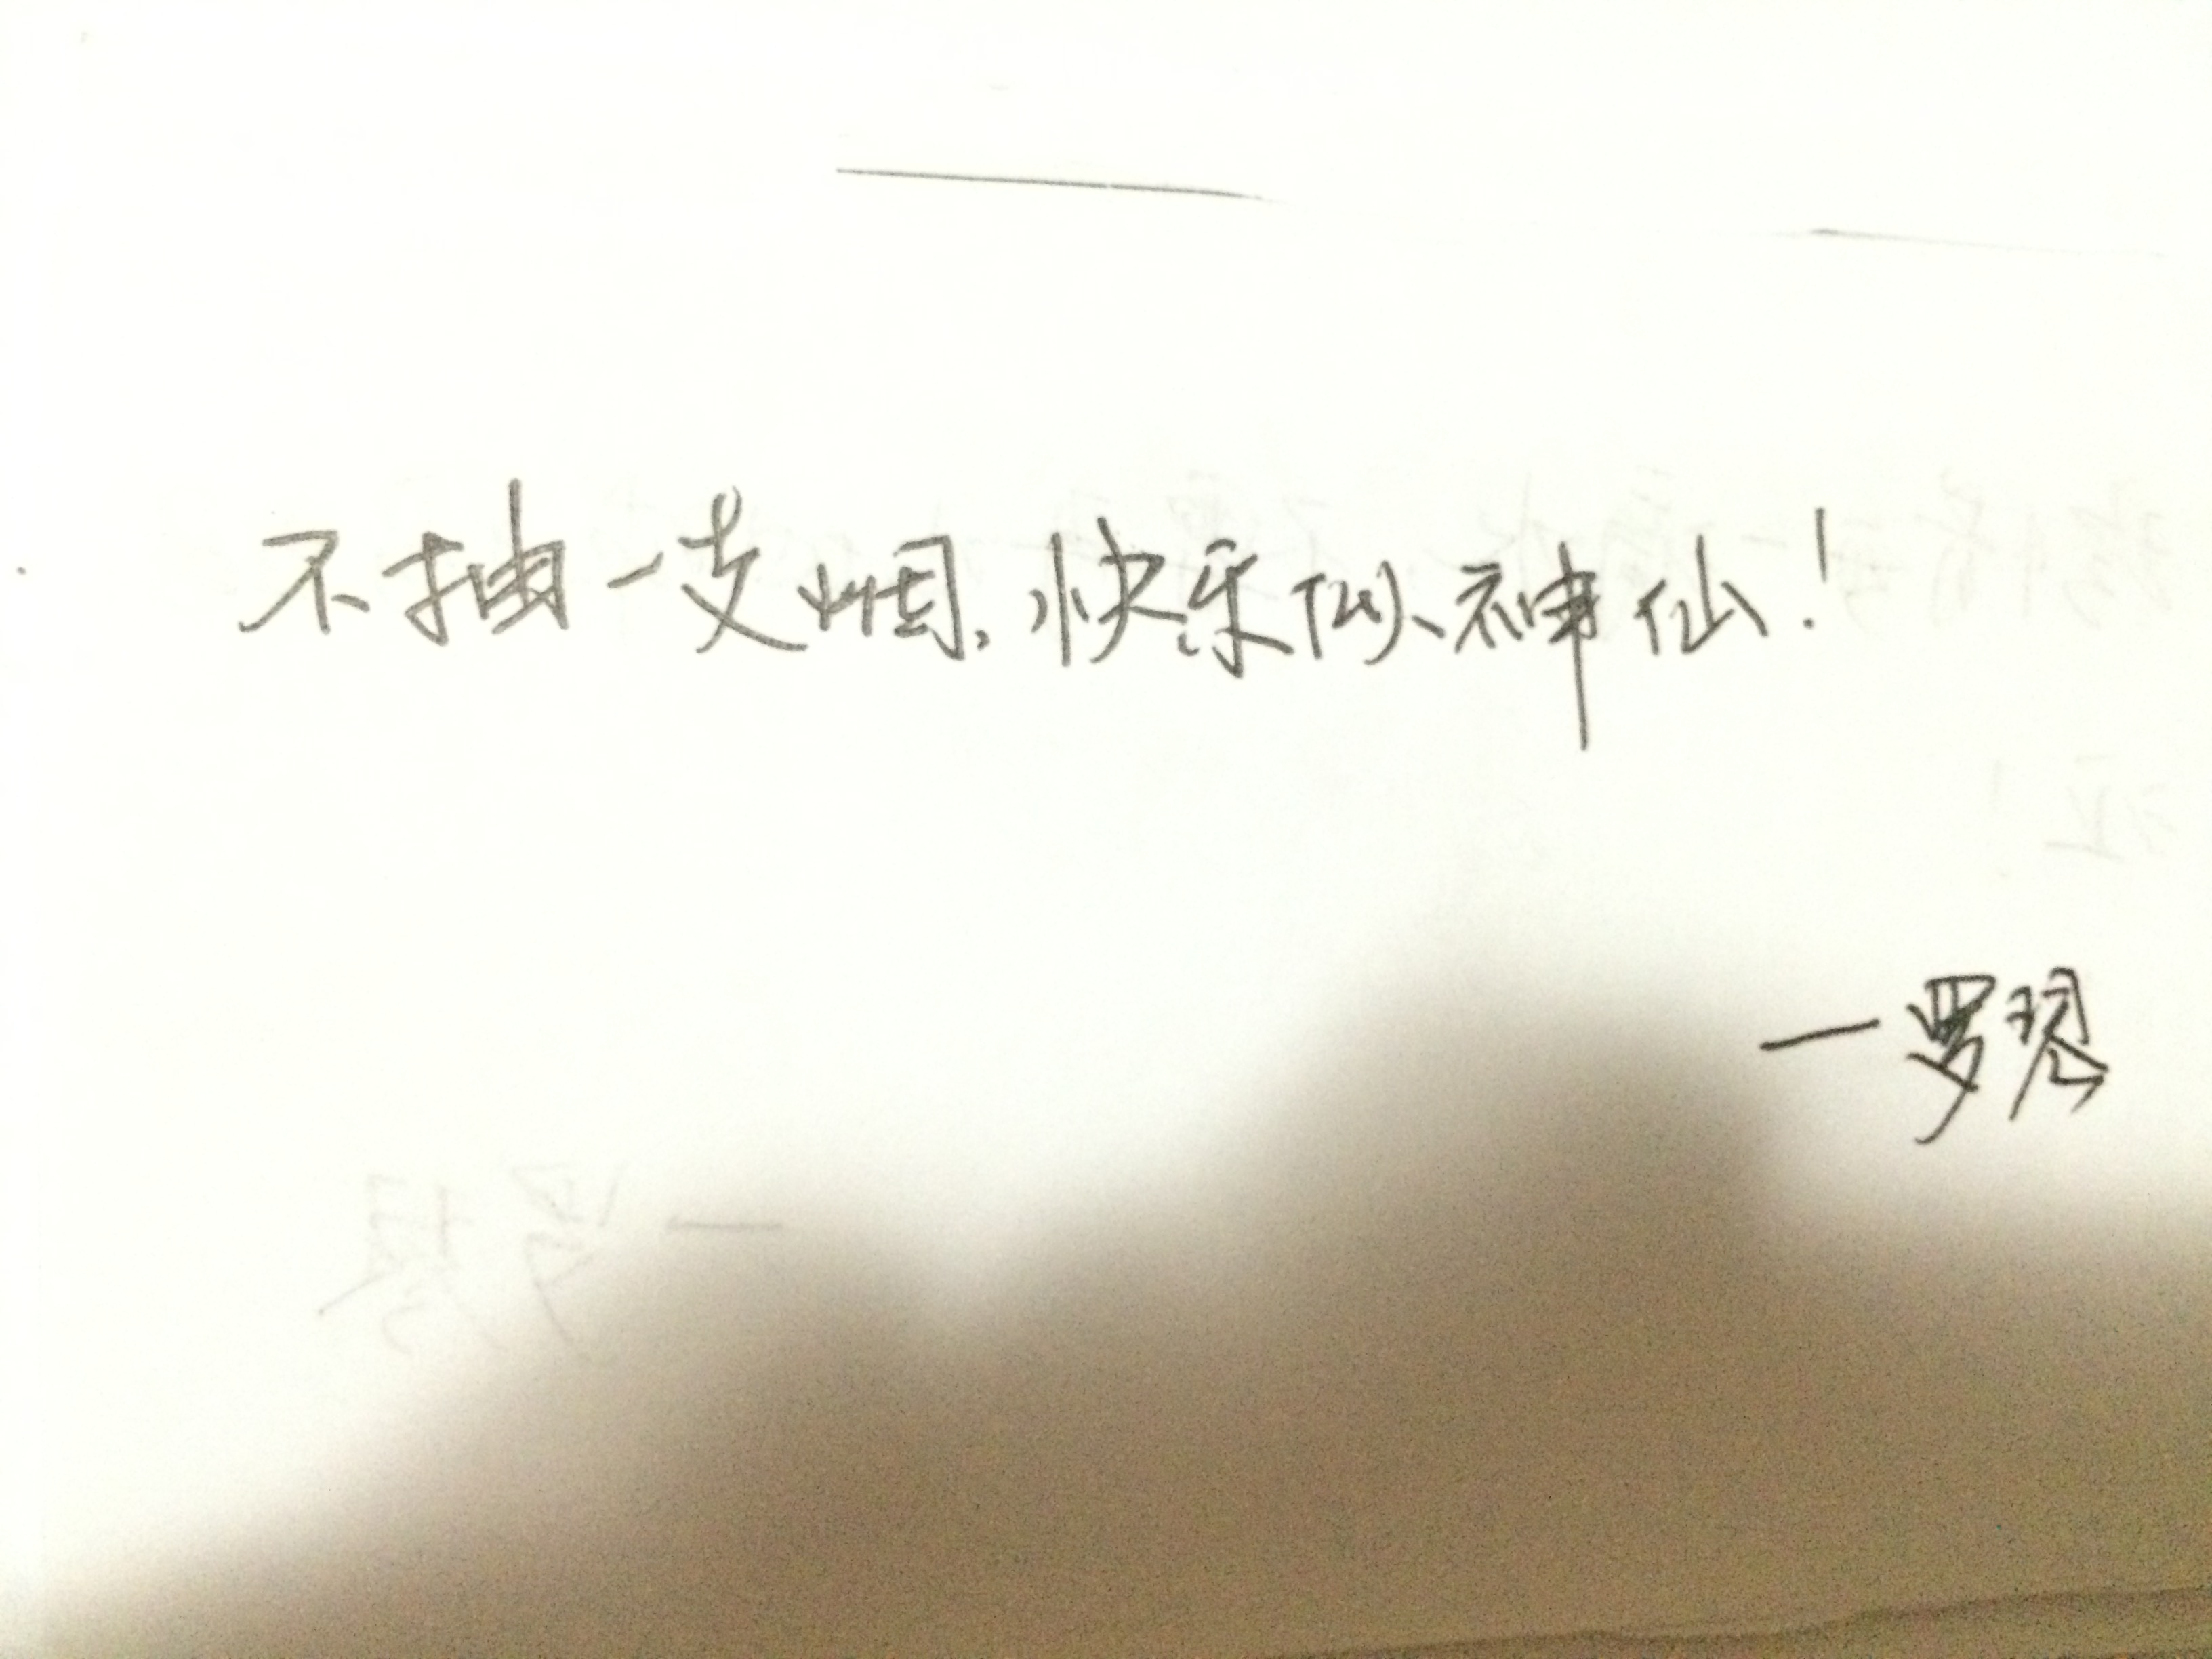 不抽一支烟,快乐似神仙!
—罗琴